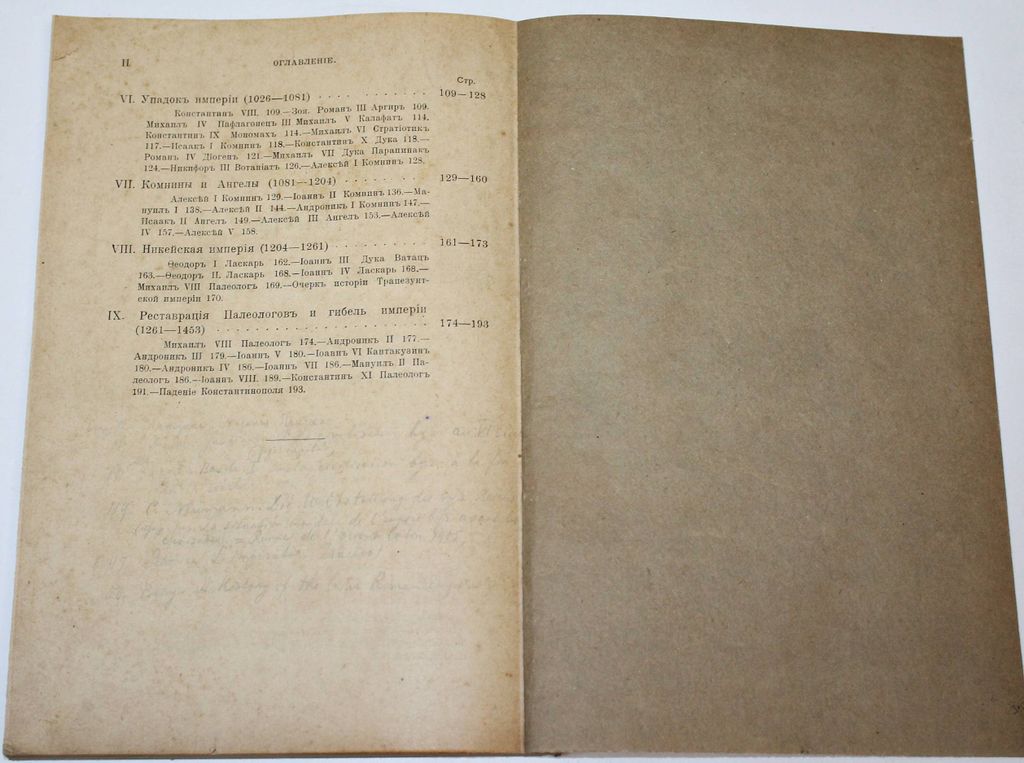 II. ОГЛАВЛЕНІЕ.
Стр.
VI. Упадокъ имперіи (1026—1081) . . . . . . . . . 109—128
Константинъ VIII. 109—Зоя. Романъ III Аргиръ 109.
Михаилъ IV Пафлагонецъ III Михаилъ V Калафатъ 114.
Константинъ IX Мономахъ 114.—Михаилъ VI Стратіотикъ
117.—Исаакъ I Комнинъ 118.—Константинъ X Дука 118.—
Романъ IV Діогенъ 121.—Михаилъ VII Дука Парапинакъ
124.—Никифоръ III Вотаніатъ 126.—Алексѣй I Комнинъ 128.
VII. Комнины и Ангелы (1081—1204) . . . . . . . 129—160
Алексѣй I Комнинъ 129.—Іоаннъ II Комнинъ 136.—Ма-
нуилъ I 138.—Алексѣй II 144.—Андроникъ I Комнинъ 147.—
Исаакъ II Ангелъ 149.—Алексѣй III Ангелъ 153.—Алексѣй
IV 157.—Алексѣй V 158.
VIII. Никейская имперія (1204—1261) . . . . . . . . . 161—173
Ѳеодоръ I Ласкарь 162.—Іоаннъ III Дука Ватацъ
163.—Ѳеодоръ II. Ласкарь 168.—Іоаннъ IV Ласкарь 168.—
Михаилъ VIII Палеологъ 169.—Очеркъ исторіи Трапезунт-
ской имперіи 170.
IX. Реставрація Палеологовъ и гибель имперіи
(1261—1453) . . . . . . . . . . . . . . . . . . . 174—193
Михаилъ VIII Палеологъ 174.—Андроникъ II 177.—
Андроникъ III 179.—Іоаннъ V 180.—Іоаннъ VI Кантакузинъ
180.—Андроникъ IV 186.—Іоаннъ VII 186.—Мануилъ II Па-
леологъ 186.—Іоаннъ VIII. 189.—Константинъ XI Палеологъ
191.—Паденіе Константинополя 193.